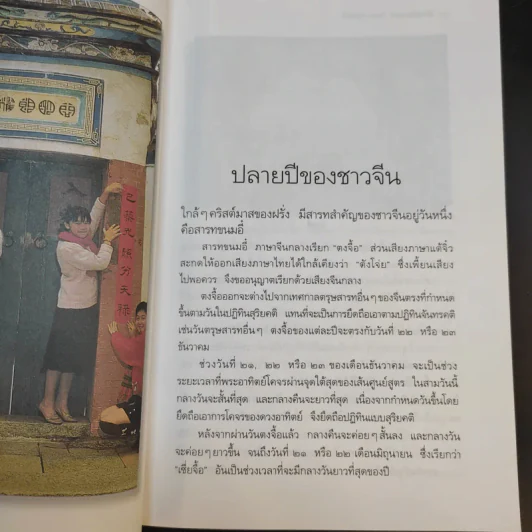 ปลายปีของชาวจีน
ใกล้ๆคริสต์มาสของฝรั่ง มีสารทสำคัญของชาวจีนอยู่วันหนึ่ง
คือสารทขนมอี๋
สารทขนมอี๋ ภาษาจีนกลางเรียก "ตงจื้อ" ส่วนเสียงภาษาแต้จิ๋ว
สะกดให้ออกเสียงภาษาไทยได้ใกล้เคียงว่า "ตังโจ่ย" ซึ่งเพี้ยนเสียง
ไปพอควร จึงขออนุญาตเรียกด้วยเสียงจีนกลาง
ตงจื้อออกจะต่างไปจากเทศกาลตรุษสารทอื่นๆของจีนตรงที่กำหนด
ขึ้นตามวันในปฏิทินสุริยคติ แทนที่จะเป็นการยึดถือเอาตามปฏิทินจันทรคติ
เช่นวันตรุษสารทอื่นๆ ตงจื้อของแต่ละปีจะตรงกับวันที่ ๒๒ หรือ ๒๓
ธันวาคม
ช่วงวันที่ ๒๑, ๒๒ หรือ ๒๓ ของเดือนธันวาคม จะเป็นช่วง
ระยะเวลาที่พระอาทิตย์โคจรผ่านจุดใต้สุดของเส้นศูนย์สูตร ในสามวันนี้
กลางวันจะสั้นที่สุด และกลางคืนจะยาวที่สุด เนื่องจากกำหนดวันขึ้นโดย
ยึดถือเอาการโคจรของดวงอาทิตย์ จึงยึดถือปฏิทินแบบสุริยคติ
หลังจากผ่านวันตงจื้อแล้ว กลางคืนจะค่อยๆสั้นลง และกลางวัน
จะค่อยๆยาวขึ้น จนถึงวันที่ ๒๑ หรือ ๒๒ เดือนมิถุนายน ซึ่งเรียกว่า
"เซี่ยจื้อ" อันเป็นช่วงเวลาที่จะมีกลางวันยาวที่สุดของปี